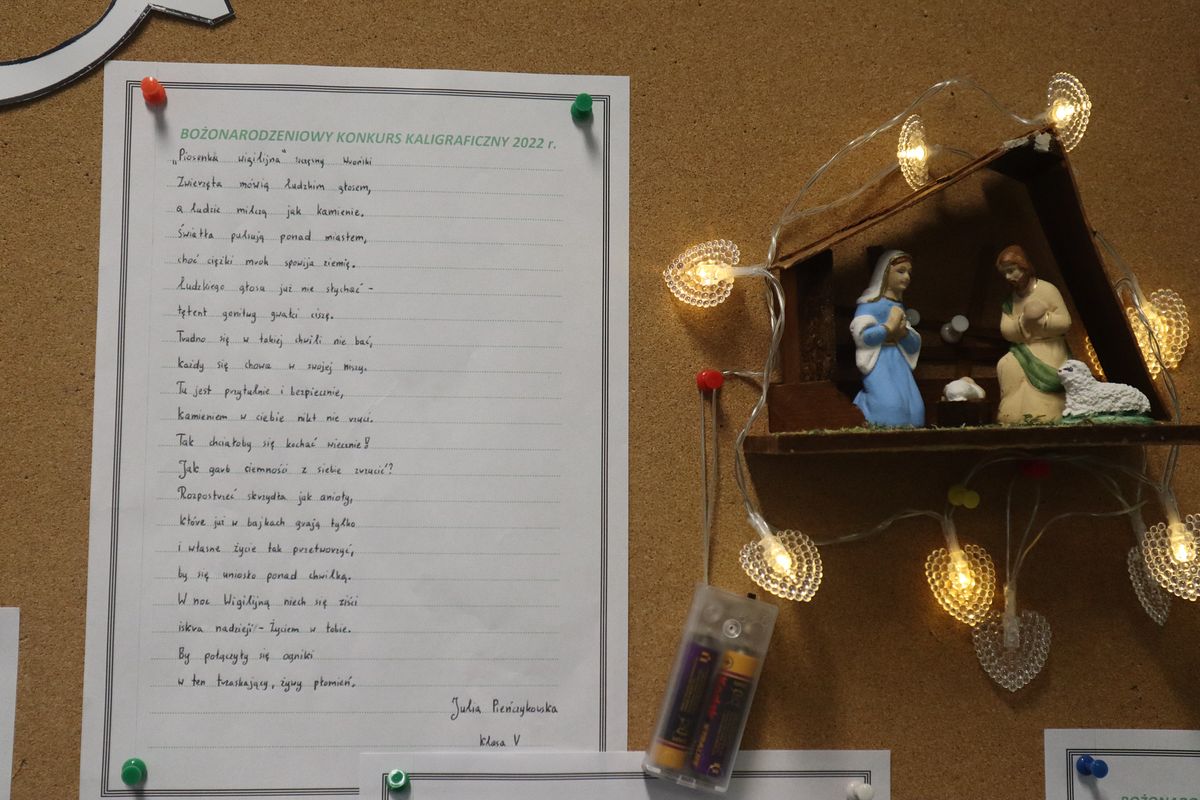 BOŻONARODZENIOWY KONKURS KALIGRAFICZNY 2022 r.
„Piosenka wigilijna" Szczęsny Wroński
Zwierzęta mówią ludzkim głosem,
a ludzie milczą jak kamienie.
Światła pulsują ponad miastem,
choć ciężki mrok spowija ziemię.
Ludzkiego głosu już nie słychać -
tętent gonitwy gwałci ciszę.
Trudno się w takiej chwili nie bać,
każdy się chowa w swojej niszy.
Tu jest przytulnie i bezpiecznie,
kamieniem w ciebie nikt nie rzuci.
Tak chciałoby się kochać wiecznie!
Jak garb ciemności z siebie zrzucić?
Rozpostrzeć skrzydła jak anioły,
które już w bajkach grają tylko
i własne życie tak przetworzyć,
by się uniosło ponad chwilką.
W noc Wigilijną niech się ziści
iskra nadzieji - Życiem w tobie.
By połączyły się ogniki
w ten trzaskający, żywy płomień.
Julia Pieńczykowska
klasa V